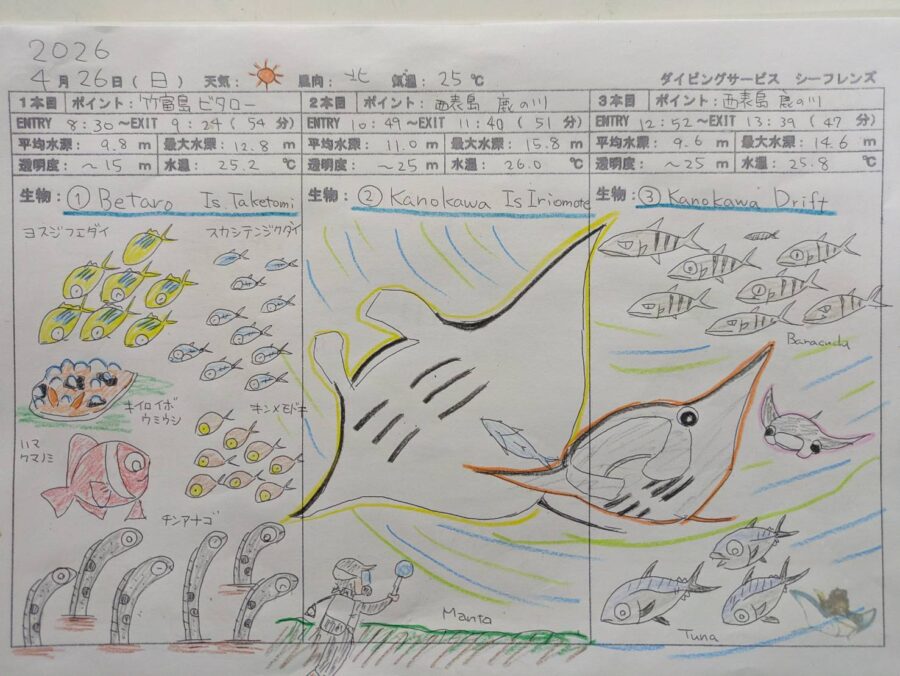 2026
4月26日(日) 天気: 風向: 北 気温: 25℃ ダイビングサービス シーフレンズ
1本目 ポイント: 竹富島 ビタロー
ENTRY 8:30 ～EXIT 9:24 (54 分)
平均水深: 9.8 m 最大水深: 12.8 m
透明度: ～15 m 水温: 25.2 ℃
生物: ① Betaro Is.Taketomi
ヨスジフエダイ
スカシテンジクダイ
キイロイボ
ウミウシ
キンメモドキ
ハマ
クマノミ
チンアナゴ
2本目 ポイント: 西表島 鹿の川
ENTRY 10:49 ～EXIT 11:40 (51 分)
平均水深: 11.0 m 最大水深: 15.8 m
透明度: ～25 m 水温: 26.0 ℃
生物: ② Kanokawa Is Iriomote
Manta
3本目 ポイント: 西表島 鹿の川
ENTRY 12:52 ～EXIT 13:39 (47 分)
平均水深: 9.6 m 最大水深: 14.6 m
透明度: ～25 m 水温: 25.8 ℃
生物: ③ Kanokawa Drift
Baracuda
Tuna